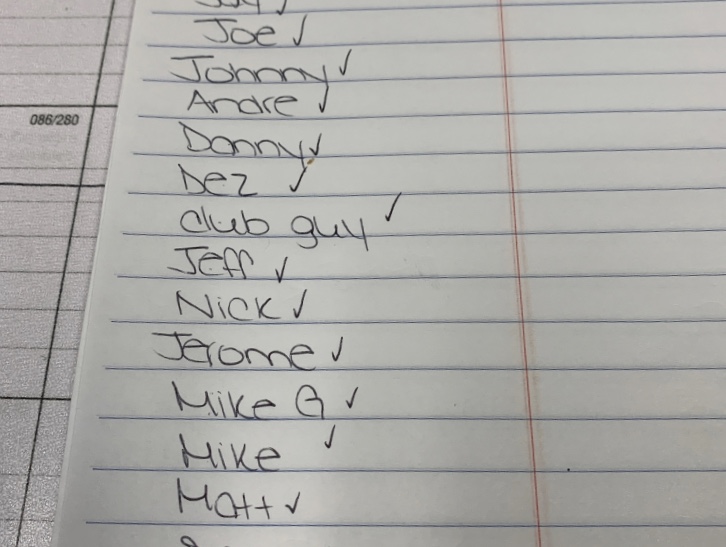 Joe ✓
Johnny ✓
Andre ✓
086/280
Danny ✓
Dez ✓
club guy ✓
Jeff ✓
Nick ✓
Jerome ✓
Mike G ✓
Mike ✓
Matt ✓